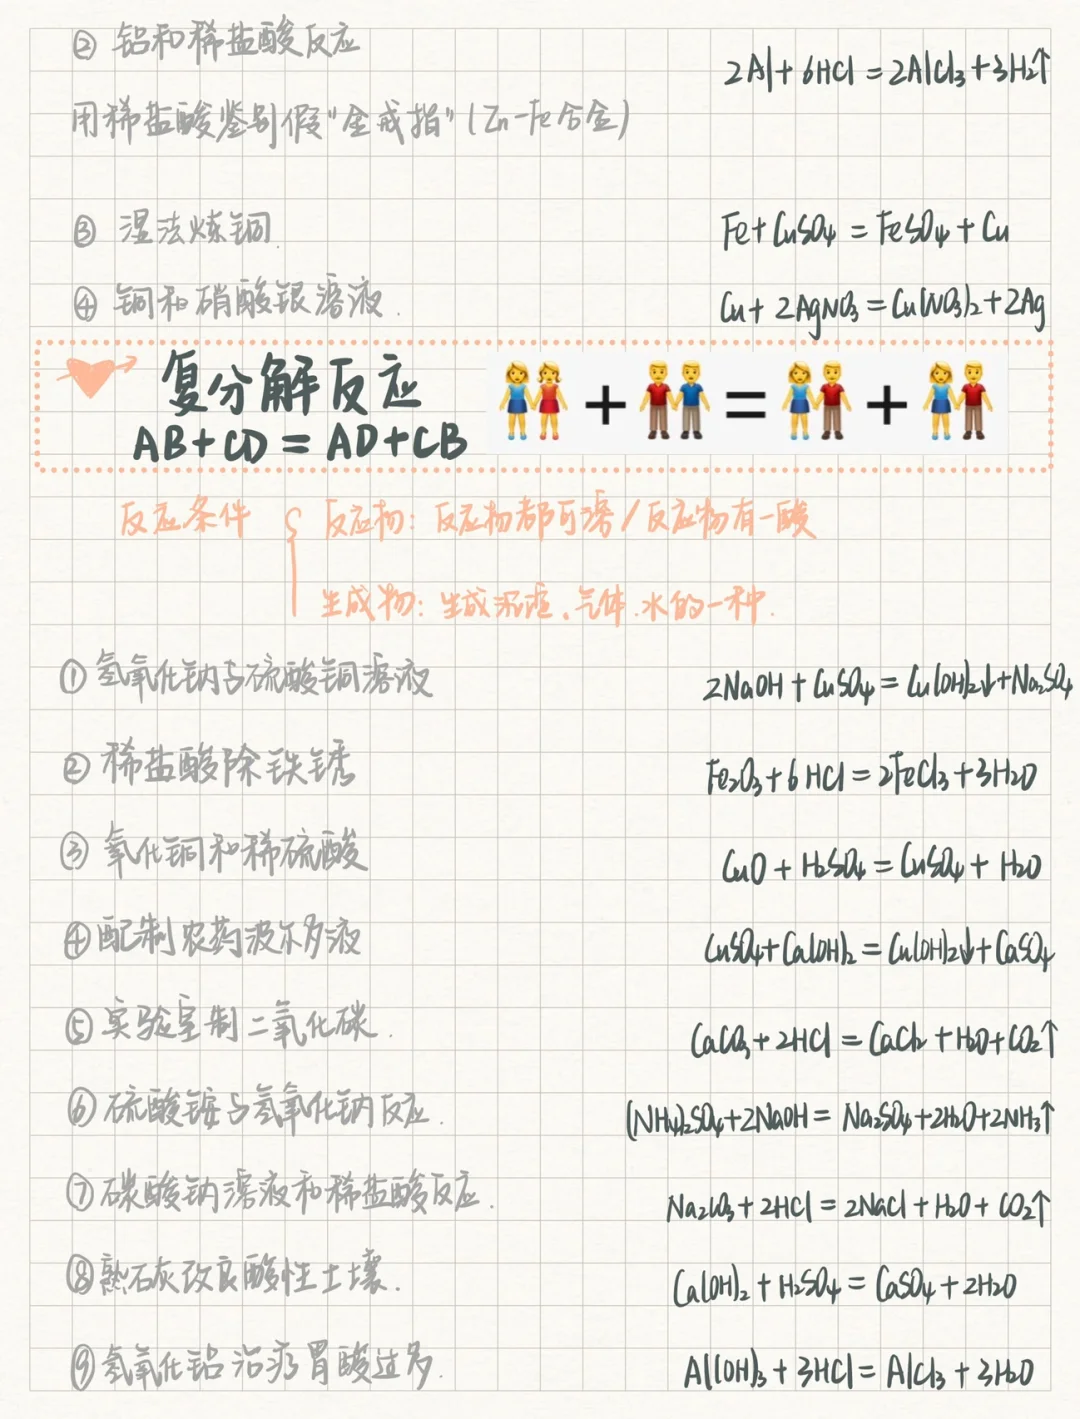 ② 铝和稀盐酸反应 2Al + 6HCl = 2AlCl₃ + 3H₂↑
用稀盐酸鉴别假"金戒指"(Zn-Fe合金)
③ 湿法炼铜. Fe + CuSO₄ = FeSO₄ + Cu
④ 铜和硝酸银溶液. Cu + 2AgNO₃ = Cu(NO₃)₂ + 2Ag
复分解反应
AB + CD = AD + CB + = +
反应条件 { 反应物: 反应物都可溶/反应物有一酸
生成物: 生成沉渣、气体.水的一种.
① 氢氧化钠与硫酸铜溶液 2NaOH + CuSO₄ = Cu(OH)₂↓ + Na₂SO₄
② 稀盐酸除铁锈 Fe₂O₃ + 6HCl = 2FeCl₃ + 3H₂O
③ 氧化铜和稀硫酸 CuO + H₂SO₄ = CuSO₄ + H₂O
④ 配制农药波尔多液 CuSO₄ + Ca(OH)₂ = Cu(OH)₂↓ + CaSO₄
⑤ 实验室制二氧化碳. CaCO₃ + 2HCl = CaCl₂ + H₂O + CO₂↑
⑥ 硫酸铵与氢氧化钠反应. (NH₄)₂SO₄ + 2NaOH = Na₂SO₄ + 2H₂O + 2NH₃↑
⑦ 碳酸钠溶液和稀盐酸反应. Na₂CO₃ + 2HCl = 2NaCl + H₂O + CO₂↑
⑧ 熟石灰改良酸性土壤. Ca(OH)₂ + H₂SO₄ = CaSO₄ + 2H₂O
⑨ 氢氧化铝治疗胃酸过多. Al(OH)₃ + 3HCl = AlCl₃ + 3H₂O